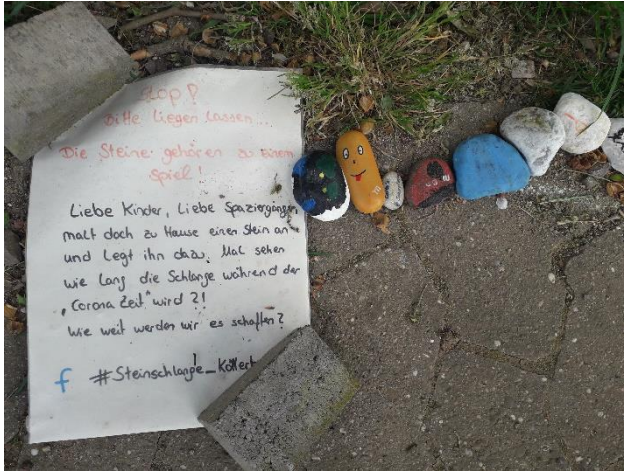 Stop!
Bitte liegen lassen...
Die Steine gehören zu einem
Spiel!
Liebe Kinder, Liebe Spaziergänger
malt doch zu Hause einen Stein an
und legt ihn dazu. Mal sehen
wie lang die Schlange während der
„Corona Zeit" wird?!
Wie weit werden wir es schaffen?
f #Steinschlange_